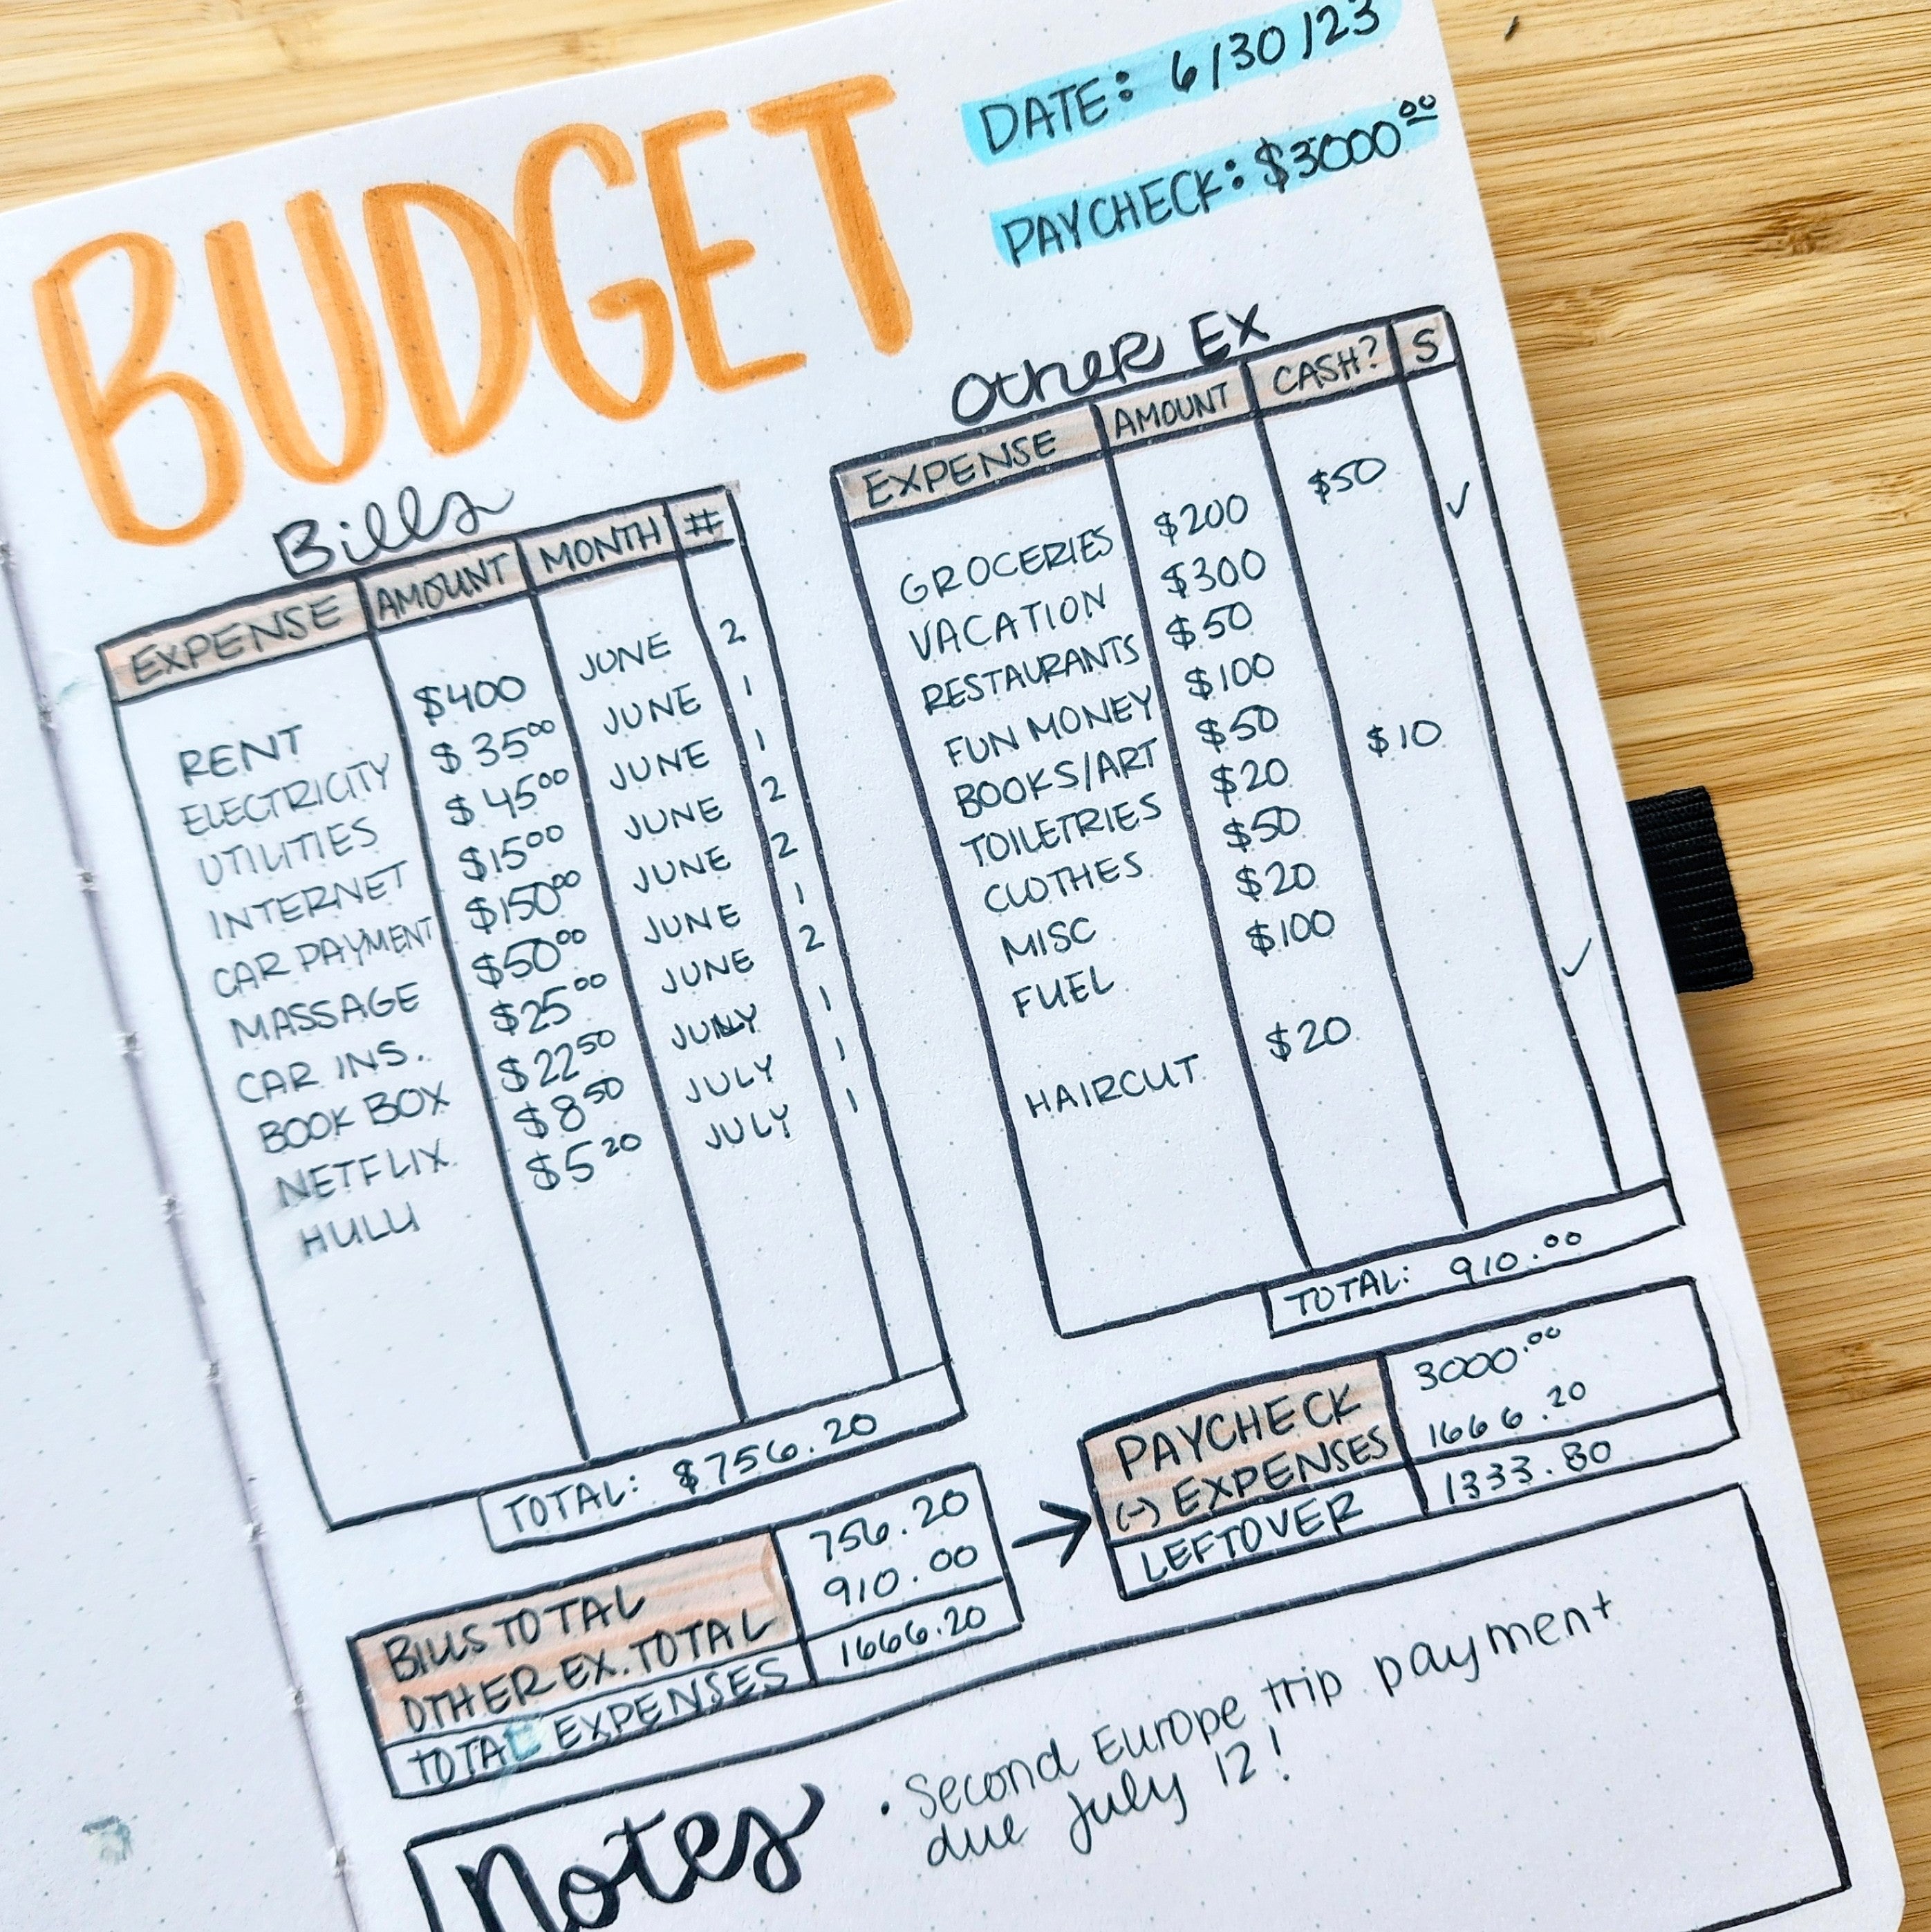 BUDGET
DATE: 6/30/23
PAYCHECK: $3000.00
Bills
EXPENSE AMOUNT MONTH #
RENT $400 JUNE 2
ELECTRICITY $35.00 JUNE 1
UTILITIES $45.00 JUNE 1
INTERNET $15.00 JUNE 2
CAR PAYMENT $150.00 JUNE 2
MASSAGE $50.00 JUNE 1
CAR INS. $25.00 JUNE 2
BOOK BOX $22.50 JULY 1
NETFLIX $8.50 JULY 1
HULU $5.20 JULY 1
TOTAL: $756.20
Other EX
EXPENSE AMOUNT CASH? S
GROCERIES $200 $50 ✓
VACATION $300
RESTAURANTS $50
FUN MONEY $100
BOOKS/ART $50
TOILETRIES $20 $10
CLOTHES $50
MISC $20
FUEL $100 ✓
HAIRCUT $20
TOTAL: 910.00
BILLS TOTAL 756.20
OTHER EX. TOTAL 910.00
TOTAL EXPENSES 1666.20
→
PAYCHECK 3000.00
(-) EXPENSES 1666.20
LEFTOVER 1333.80
Notes
• Second Europe trip payment
due July 12!